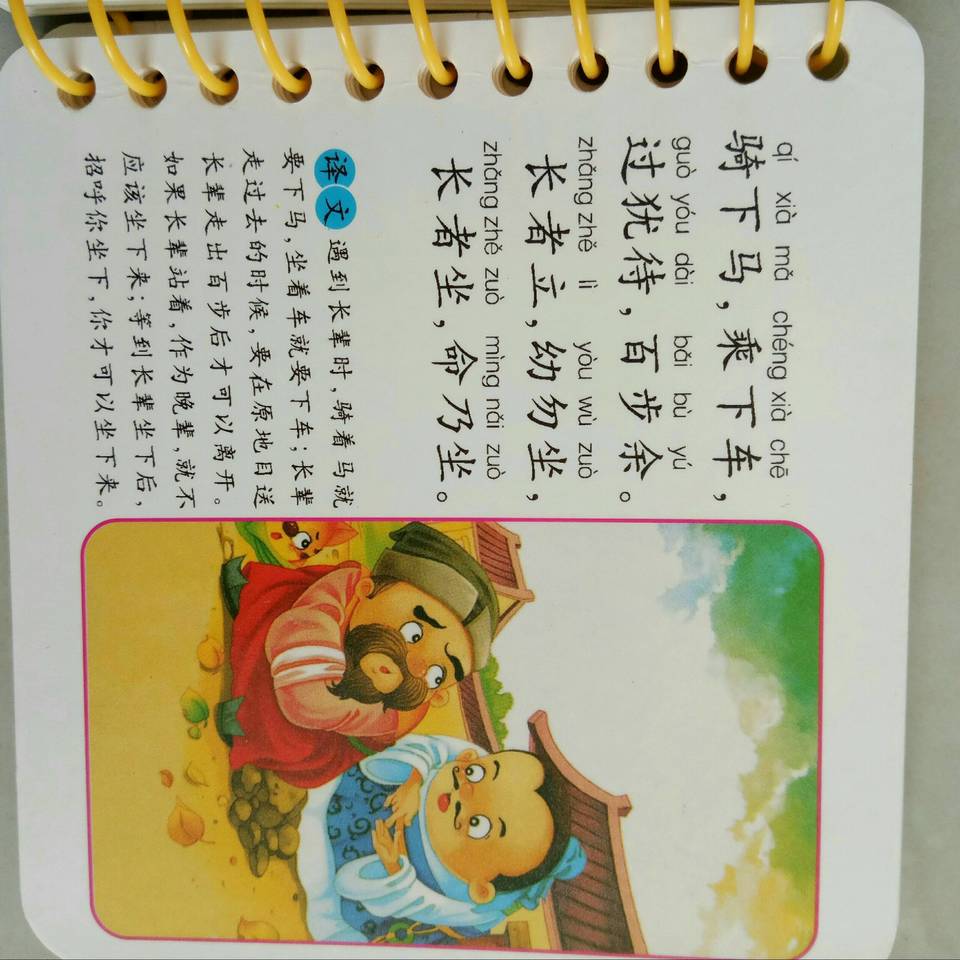 qí xià mǎ chéng xià chē
骑下马，乘下车，
guò yóu dài bǎi bù yú
过犹待，百步余。
zhǎng zhě lì yòu wù zuò
长者立，幼勿坐，
zhǎng zhě zuò mìng nǎi zuò
长者坐，命乃坐。
译文 遇到长辈时，骑着马就
要下马，坐着车就要下车；长辈
走过去的时候，要在原地目送
长辈走出百步后才可以离开。
如果长辈站着，作为晚辈，就不
应该坐下来；等到长辈坐下后，
招呼你坐下，你才可以坐下来。